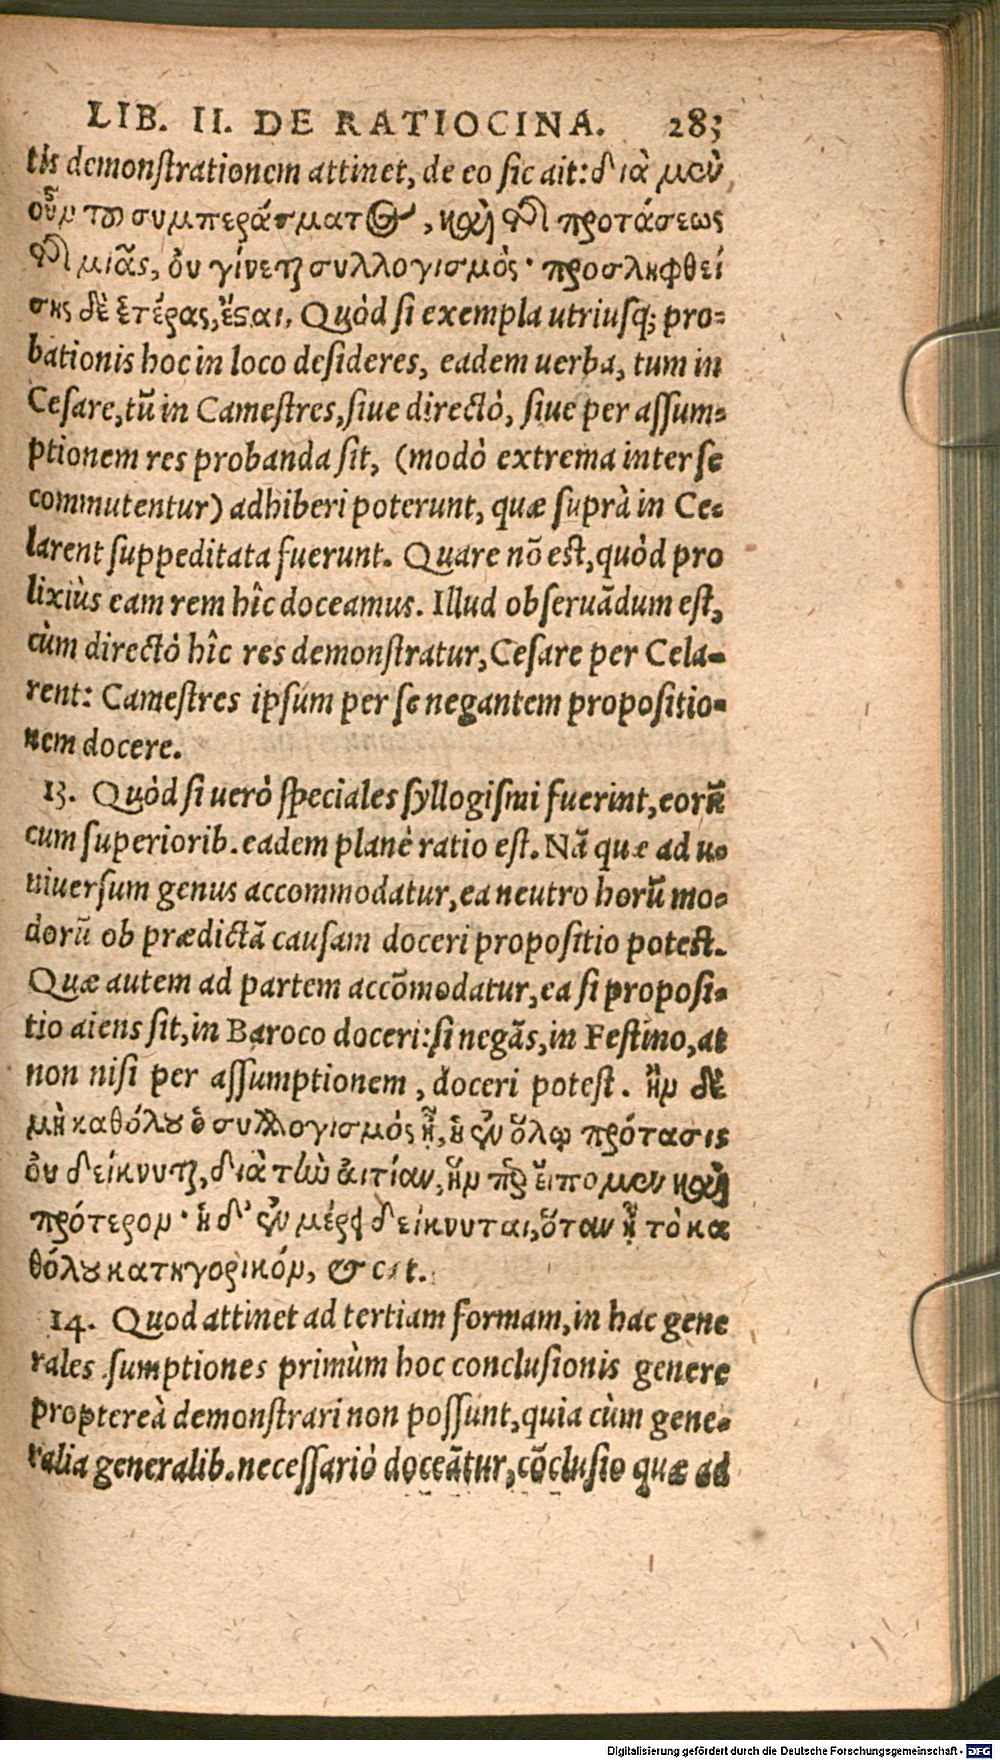 LIB. II. DE RATIOCINA. 283
tis demonstrationem attinet, de eo sic ait: διὰ μὲν
οὖν τοῦ συμπεράσματος, καὶ τῆς προτάσεως
τῆς μιᾶς, οὐ γίνεται συλλογισμός· προσληφθεί
σης δὲ ἑτέρας, ἔσαι. Quòd si exempla utriusq; pro-
bationis hoc in loco desideres, eadem uerba, tum in
Cesare, tũ in Camestres, siue directò, siue per assum-
ptionem res probanda sit, (modò extrema inter se
commutentur) adhiberi poterunt, quæ suprà in Ce-
larent suppeditata fuerunt. Quare nõ est, quòd pro
lixiùs eam rem hîc doceamus. Illud obseruãdum est,
cùm directò hîc res demonstratur, Cesare per Cela-
rent: Camestres ipsum per se negantem propositio-
nem docere.
13. Quòd si uerò speciales syllogismi fuerint, eorũ
cum superiorib. eadem planè ratio est. Nã quæ ad u-
niuersum genus accommodatur, ea neutro horũ mo-
dorũ ob prædictã causam doceri propositio potest.
Quæ autem ad partem accõmodatur, ea si proposi-
tio aiens sit, in Baroco doceri: si negãs, in Festino, at
non nisi per assumptionem, doceri potest. ἢν δὲ
μὴ καθόλου ὁ συλλογισμός ᾖ, ἡ ἐν ὅλῳ πρότασις
οὐ δείκνυται, διὰ τὴν αἰτίαν, ἥν περ εἴπομεν καὶ
πρότερον· ἡ δ' ἐν μέρει δείκνυται, ὅταν ᾖ τὸ κα
θόλου κατηγορικόν, & cæt.
14. Quod attinet ad tertiam formam, in hac gene
rales sumptiones primùm hoc conclusionis genere
proptereà demonstrari non possunt, quia cùm gene-
ralia generalib. necessariò doceãtur, cõclusio quæ ad
Digitalisierung gefördert durch die Deutsche Forschungsgemeinschaft - DFG